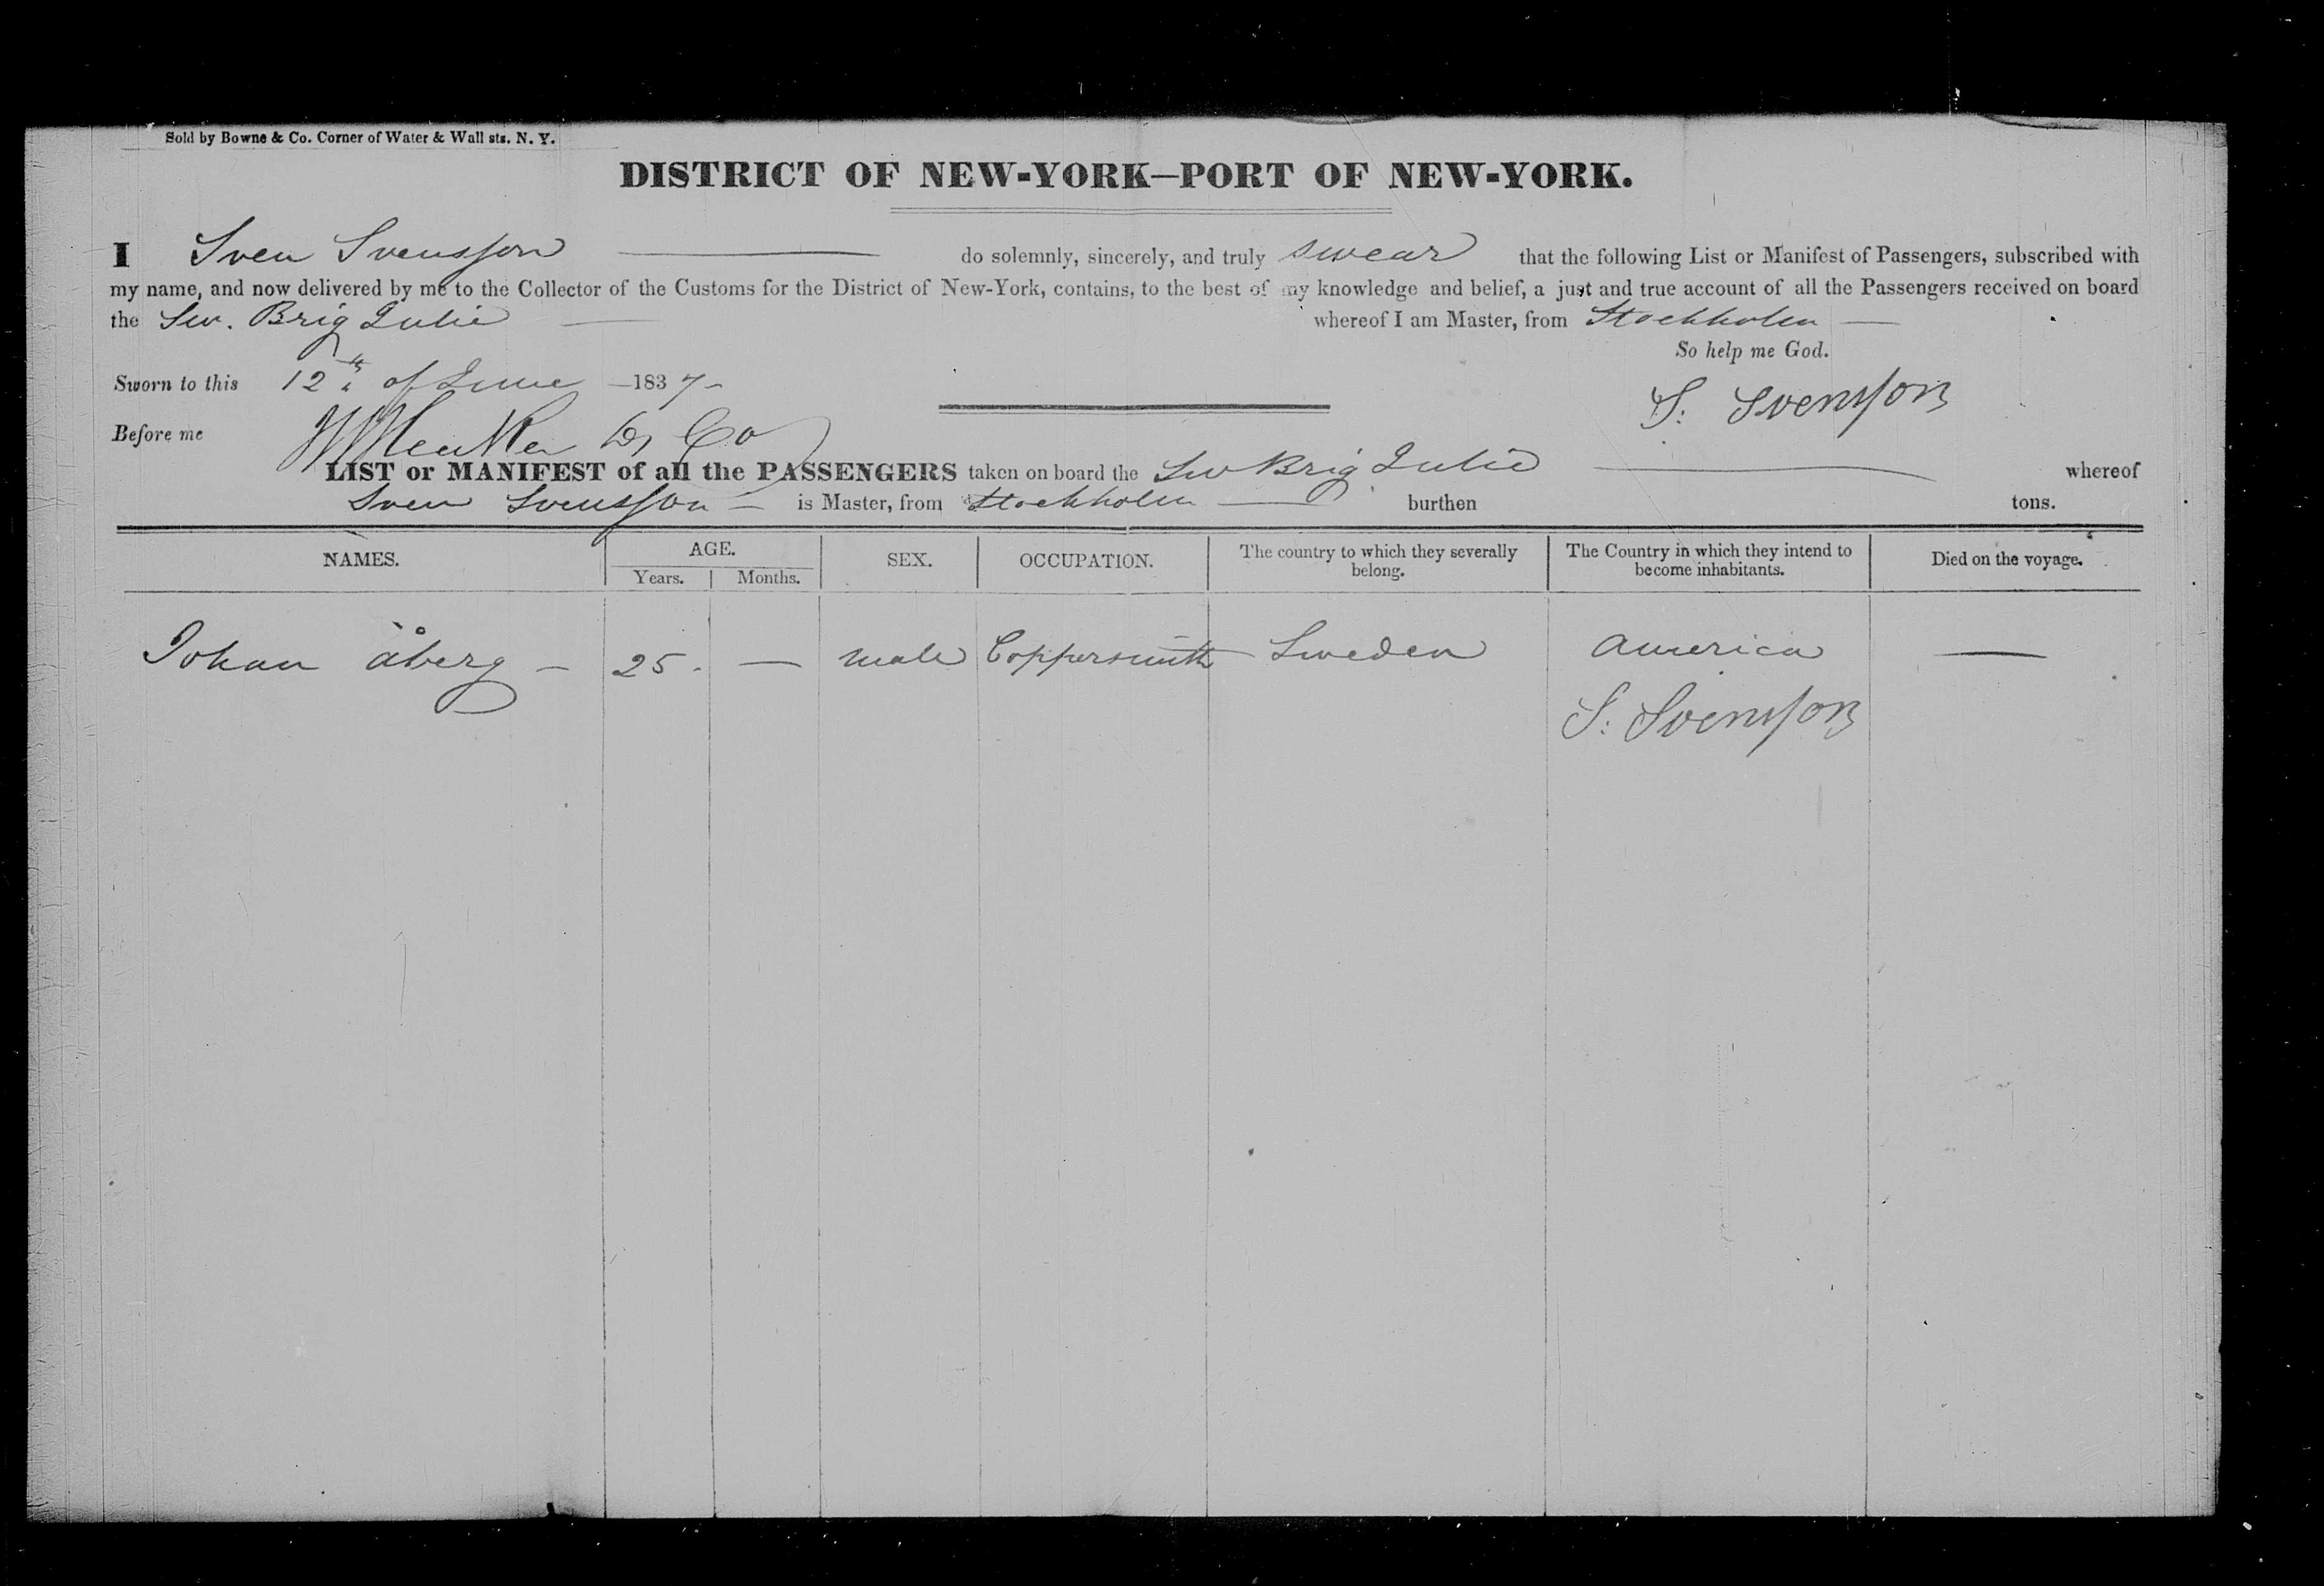 Sold by Bowne & Co. Corner of Water & Wall sts. N. Y.
DISTRICT OF NEW-YORK—PORT OF NEW-YORK.
I Sven Svensson — do solemnly, sincerely, and truly swear that the following List or Manifest of Passengers, subscribed with
my name, and now delivered by me to the Collector of the Customs for the District of New-York, contains, to the best of my knowledge and belief, a just and true account of all the Passengers received on board
the Sw. Brig Julie — whereof I am Master, from Stockholm —
So help me God.
Sworn to this 12th of June —1837—
S: Svensson
Before me
LIST or MANIFEST of all the PASSENGERS taken on board the Sw Brig Julie — whereof
Sven Svensson — is Master, from Stockholm — burthen tons.
NAMES. AGE. SEX. OCCUPATION. The country to which they severally belong. The Country in which they intend to become inhabitants. Died on the voyage.
Years. Months.
Johan åberg — 25. — male Coppersmith Sweden america —
S: Svensson